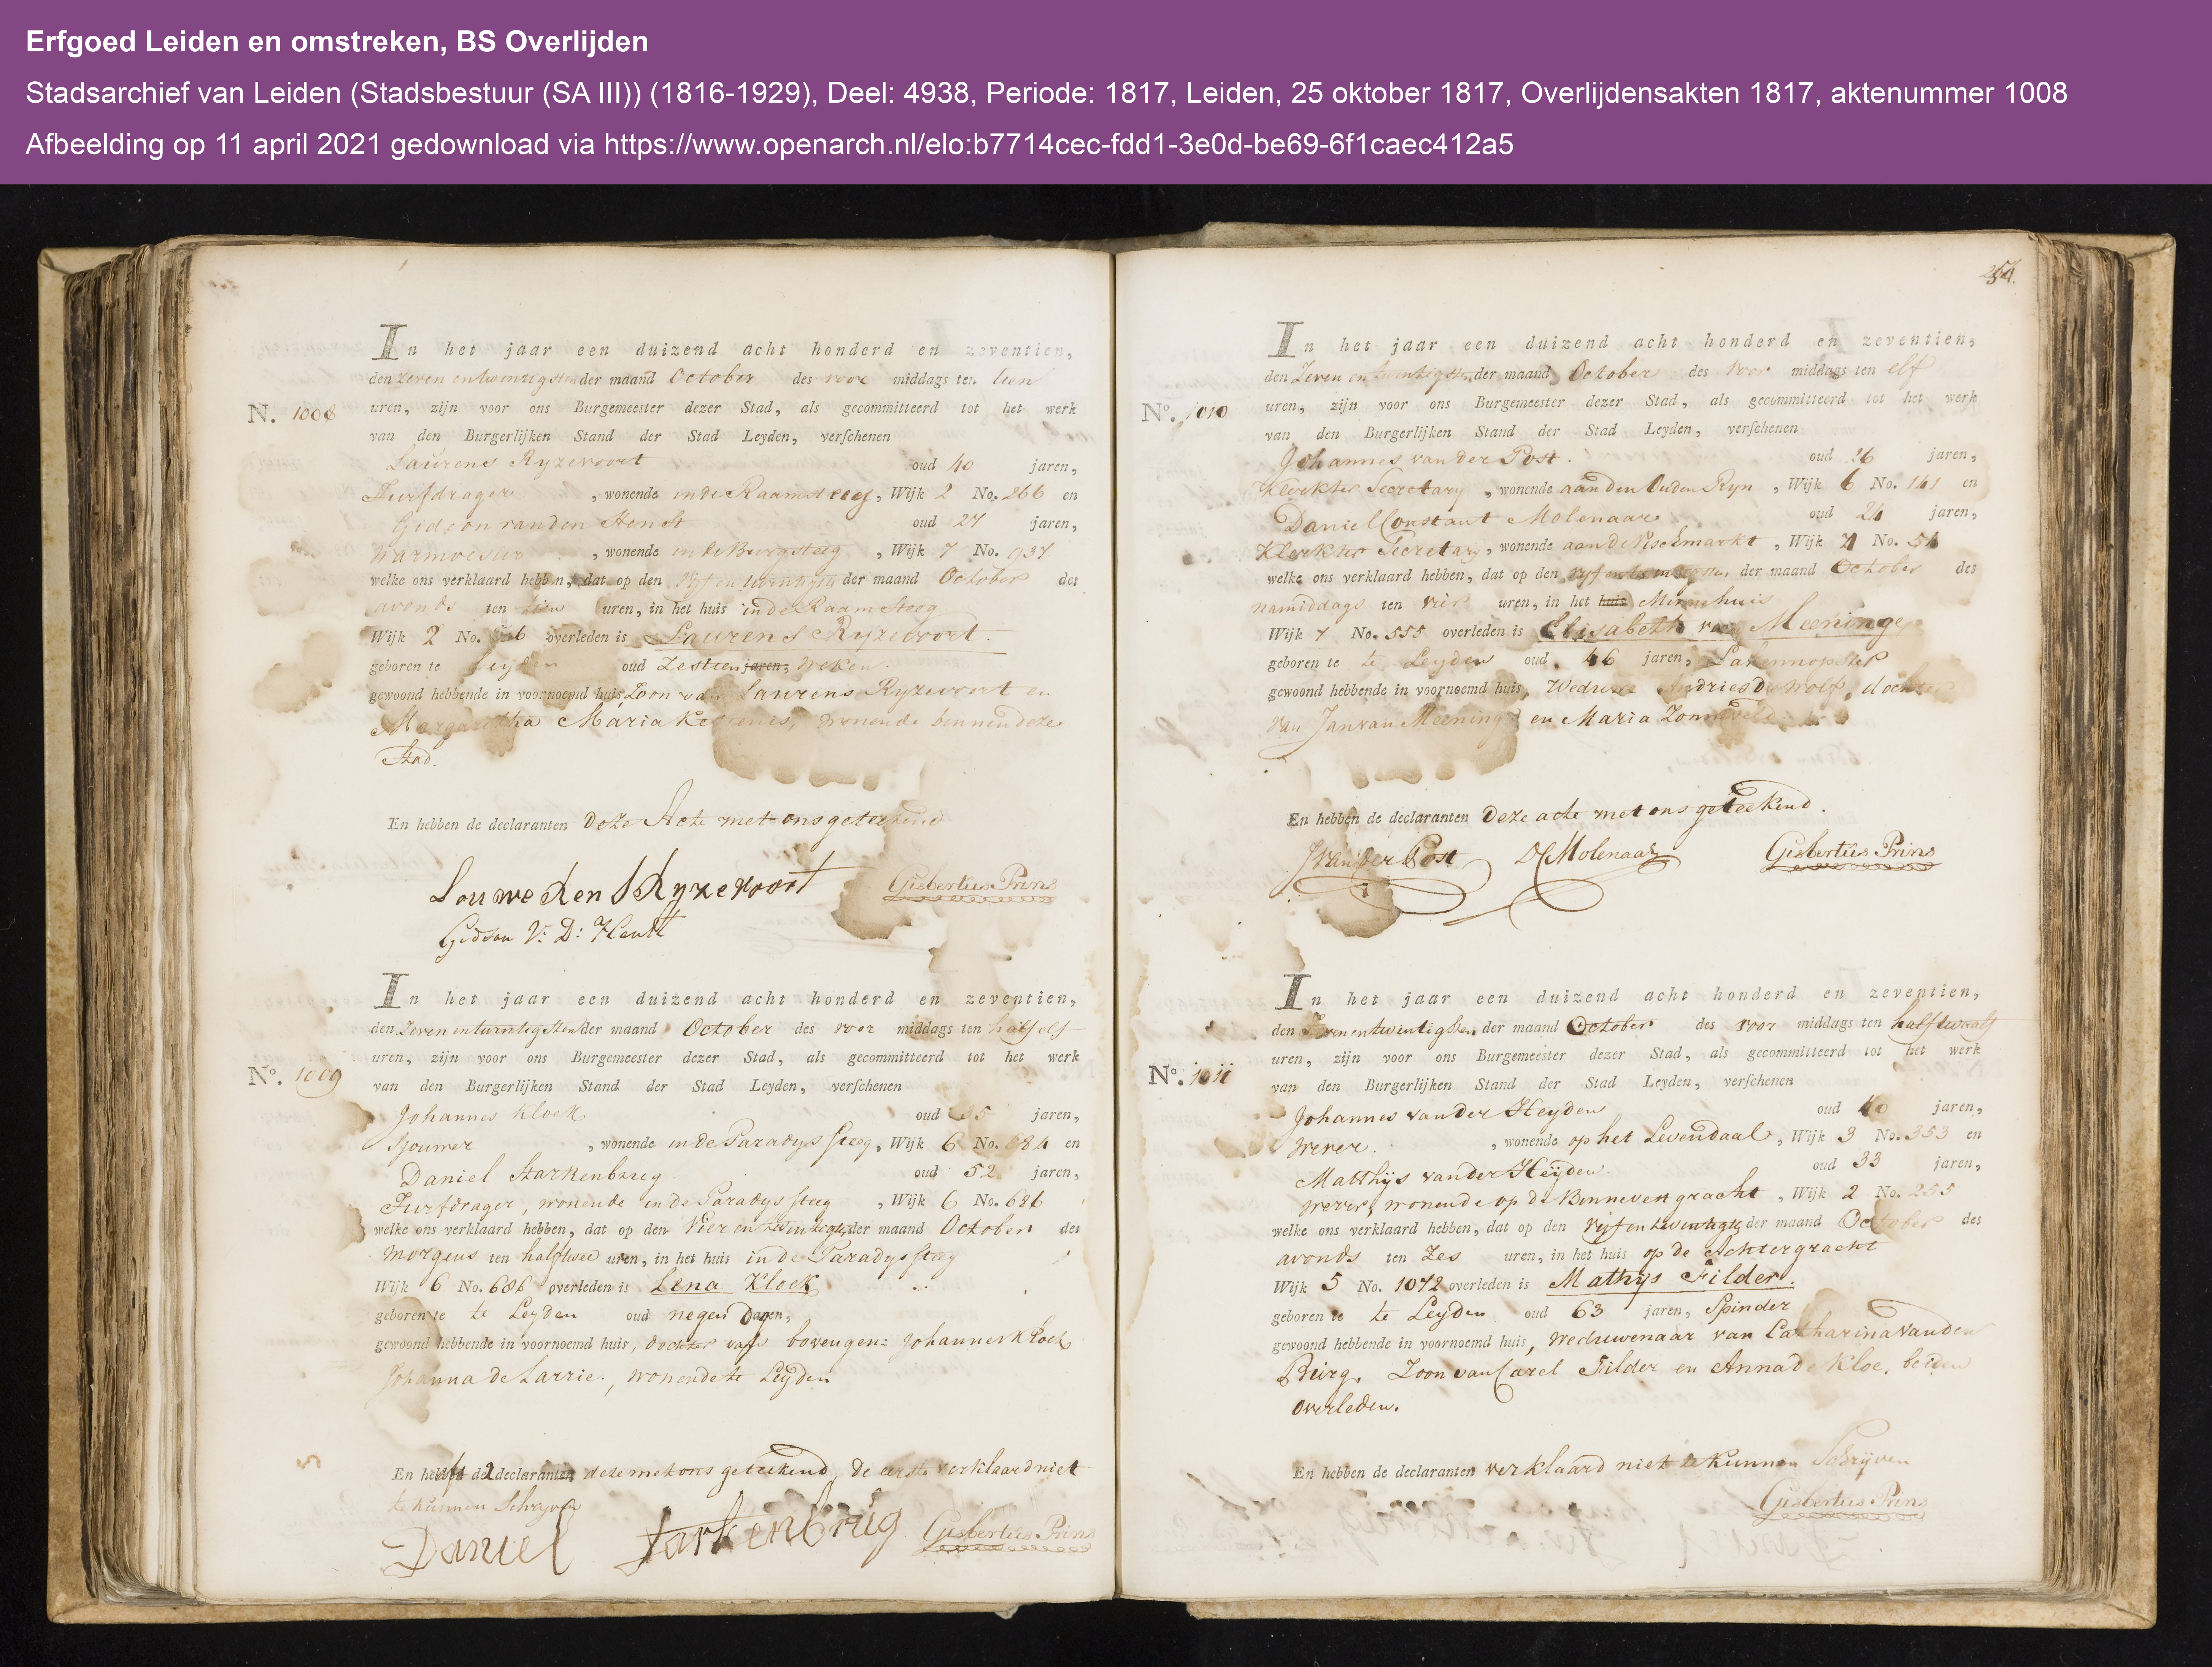 Erfgoed Leiden en omstreken, BS Overlijden
Stadsarchief van Leiden (Stadsbestuur (SA III)) (1816-1929), Deel: 4938, Periode: 1817, Leiden, 25 oktober 1817, Overlijdensakten 1817, aktenummer 1008
Afbeelding op 11 april 2021 gedownload via https://www.openarch.nl/elo:b7714cec-fdd1-3e0d-be69-6f1caec412a5
In het jaar een duizend acht honderd en zeventien,
den Zeven entwintigsten der maand October des voor middags ten tien
N. 1008
uren, zijn voor ons Burgemeester dezer Stad, als gecommitteerd tot het werk
van den Burgerlijken Stand der Stad Leyden, verschenen
Laurens Ryzevoort oud 40 jaren,
Turfdrager, wonende in de Raamsteeg, Wijk 2 No. 266 en
Gideon van den Henst oud 27 jaren,
Warmoesier, wonende in de Burgsteeg, Wijk 7 No. 937
welke ons verklaard hebben, dat op den vyf en twintigste der maand October des
avonds ten uren, in het huis in de Raam Steeg
Wijk 2 No. overleden is Laurens Ryzevoort.
geboren te Leyden oud Zestien jaren, Weken.
gewoond hebbende in voornoemd huis, Zoon van Laurens Ryzevoort en
Margaretha Maria wonende binnen deze
Stad.
En hebben de declaranten Deze Acte met ons geteekend
Louwe Ren S Ryzevoort Gisbertus Prins
Gideon V: D: Henst
In het jaar een duizend acht honderd en zeventien,
den Zeven entwintigsten der maand October des voor middags ten half elf
uren, zijn voor ons Burgemeester dezer Stad, als gecommitteerd tot het werk
No. 1009
van den Burgerlijken Stand der Stad Leyden, verschenen
Johannes Kloek oud 35 jaren,
Sjouwer, wonende in de Paradys steeg, Wijk 6 No. 684 en
Daniel Starkenbrug oud 52 jaren,
Turfdrager, wonende in de Paradys steeg, Wijk 6 No. 686
welke ons verklaard hebben, dat op den Vier en twintigste der maand October des
Morgens ten half twee uren, in het huis in de Paradys steeg
Wijk 6 No. 686 overleden is Lena Kloek
geboren te te Leyden oud negen Dagen,
gewoond hebbende in voornoemd huis, dochter van bovengen: Johannes Kloek
Johanna de Larrie, wonende te Leyden
En heeft de 2 declarant deze met ons geteekend, de eerste verklaard niet
te kunnen Schryven
Daniel Starkenbrug Gisbertus Prins
254.
In het jaar een duizend acht honderd en zeventien,
den Zeven en twintigsten der maand October des voor middags ten elf
No. 1010
uren, zijn voor ons Burgemeester dezer Stad, als gecommitteerd tot het werk
van den Burgerlijken Stand der Stad Leyden, verschenen
Johannes van der Post. oud 26 jaren,
Klerk ter Secretary, wonende aan den Ouden Ryn, Wijk 6 No. 141 en
Daniel Constant Molenaar oud 24 jaren,
Klerk ter Secretary, wonende aan de Vischmarkt, Wijk 4 No. 54
welke ons verklaard hebben, dat op den vyfentwintigsten der maand October des
namiddags ten vier uren, in het huis Minnehuis
Wijk 7 No. 555 overleden is Elisabeth van Meeninge,
geboren te te Leyden oud 46 jaren, Lakennopster
gewoond hebbende in voornoemd huis, Weduwe Andries De Wolf, dochter
van Jan van Meeninge en Maria Zonneveld
En hebben de declaranten Deze acte met ons geteekend.
J van der Post DC Molenaar Gisbertus Prins
In het jaar een duizend acht honderd en zeventien,
den Zevenentwintigsten der maand October des voor middags ten half twaalf
uren, zijn voor ons Burgemeester dezer Stad, als gecommitteerd tot het werk
No. 1011
van den Burgerlijken Stand der Stad Leyden, verschenen
Johannes van der Heyden oud 40 jaren,
Wever, wonende op het Levendaal, Wijk 3 No. 353 en
Matthijs van der Heijden oud 33 jaren,
Wever, wonende op de Binnevest gracht, Wijk 2 No. 255
welke ons verklaard hebben, dat op den vyf en twintigste der maand October des
avonds ten Zes uren, in het huis op de Achtergracht
Wijk 5 No. 1072 overleden is Mathijs Filder.
geboren te te Leyden oud 63 jaren, Spinder
gewoond hebbende in voornoemd huis, Weduwenaar van Catharina van den
Burg. Zoon van Carel Filder en Anna de Kloe, beiden
overleden.
En hebben de declaranten verklaard niet te kunnen Schrijven
Gisbertus Prins